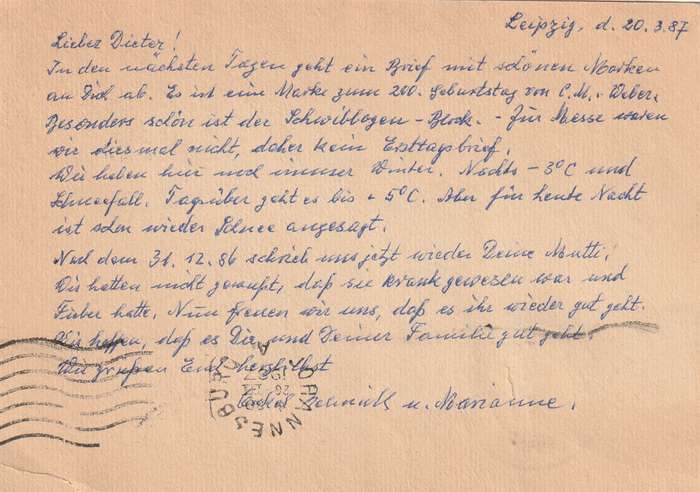 Leipzig, d. 20.3.87
Lieber Dieter!
In den nächsten Tagen geht ein Brief mit schönen Marken
an Dich ab. Es ist eine Marke zum 200. Geburtstag von C.M.v. Weber.
Besonders schön ist der Schwibbogen-Block. - Zur Messe waren
wir diesmal nicht, daher kein Ersttagsbrief.
Wir haben hier noch immer Winter. Nachts -8°C und
Schneefall. Tagsüber geht es bis +5°C. Aber für heute Nacht
ist schon wieder Schnee angesagt.
Nach dem 31.12.86 schrieb uns jetzt wieder Deine Mutti.
Wir hatten nicht gewußt, daß sie krank gewesen war und
Fieber hatte. Nun freuen wir uns, daß es ihr wieder gut geht.
Wir hoffen, daß es Dir und Deiner Familie gut geht.
Wir grüßen Euch herzlichst
u. Marianne.
JOHANNESBURG